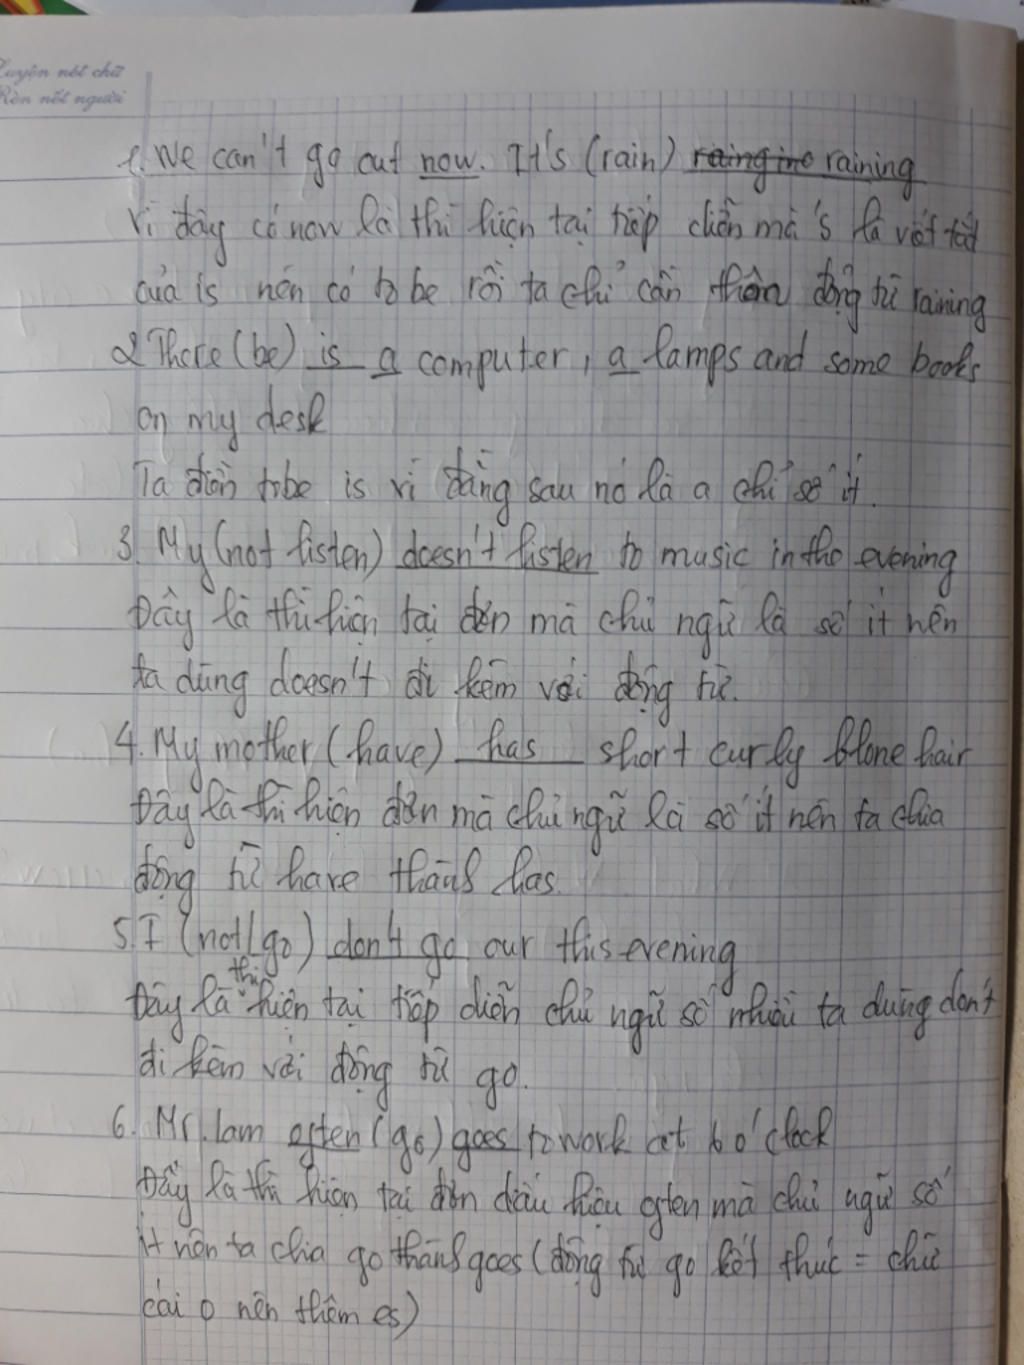 Luyện nét chữ
Rèn nết người
1. We can't go out now. It's (rain) raining ino raining
Vì đây có now là thì hiện tại tiếp diễn mà 's là viết tắt
của is nên có to be rồi ta chỉ cần thêm động từ raining
2 There (be) is a computer, a lamps and some books
on my desk
Ta điền tobe is vì đằng sau nó là a chỉ số ít.
3. My (not listen) doesn't listen to music in the evening
Đây là thì hiện tại đơn mà chủ ngữ là số ít nên
ta dùng doesn't đi kèm với động từ.
4. My mother (have) has short curly blone hair
Đây là thì hiện đơn mà chủ ngữ là số ít nên ta chia
động từ have thành has.
5. I (not/go) don't go our this evening
Đây là thì hiện tại tiếp diễn chủ ngữ số nhiều ta dùng don't
đi kèm với động từ go.
6. Mr. lam often (go) goes to work at 6 o'clock
Đây là thì hiện tại đơn dấu hiệu often mà chủ ngữ số
ít nên ta chia go thành goes (động từ go kết thúc = chữ
cái o nên thêm es)